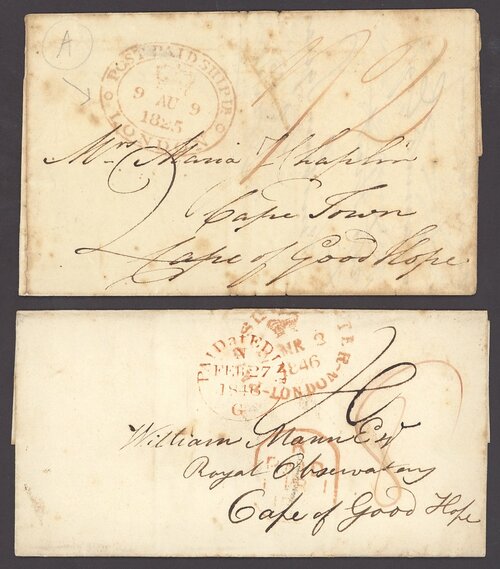 A
POST PAID SHIP LR
9 AU 9
1825
LONDON
Mrs. Maria Chaplin
2
Cape Town
Cape of Good Hope
PAID
FEB 27
1846
G
MR 2
1846
LONDON
William Mann Esqr
Royal Observatory
Cape of Good Hope